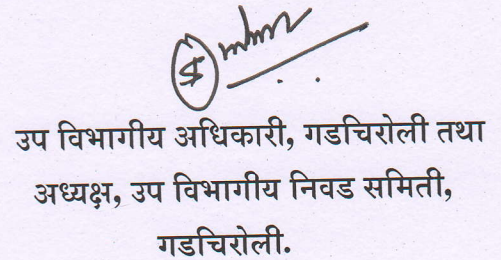 उप विभागीय अधिकारी, गडचिरोली तथा
अध्यक्ष, उप विभागीय निवड समिती,
गडचिरोली.